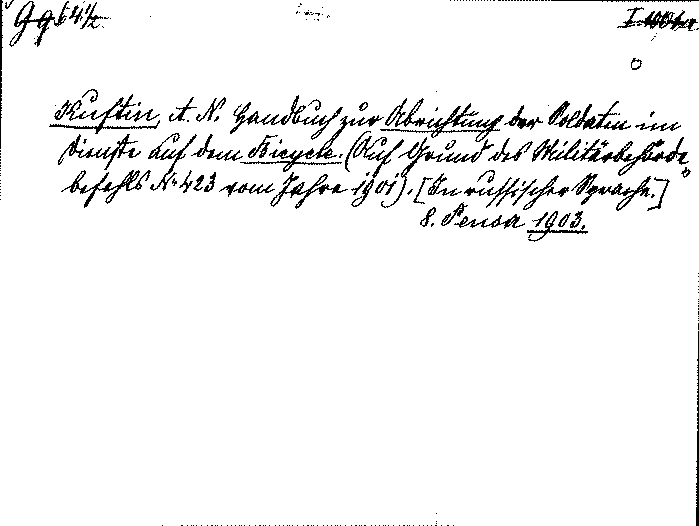 Gg 64½
Kuftin, A. N. Handbuch zur Abrichtung der Soldaten im
Dienste auf dem Bicycle. (Auf Grund des Militärbehörde-
befehls No 423 vom Jahre 1901). [In russischer Sprache.]
8. Pensa 1903.